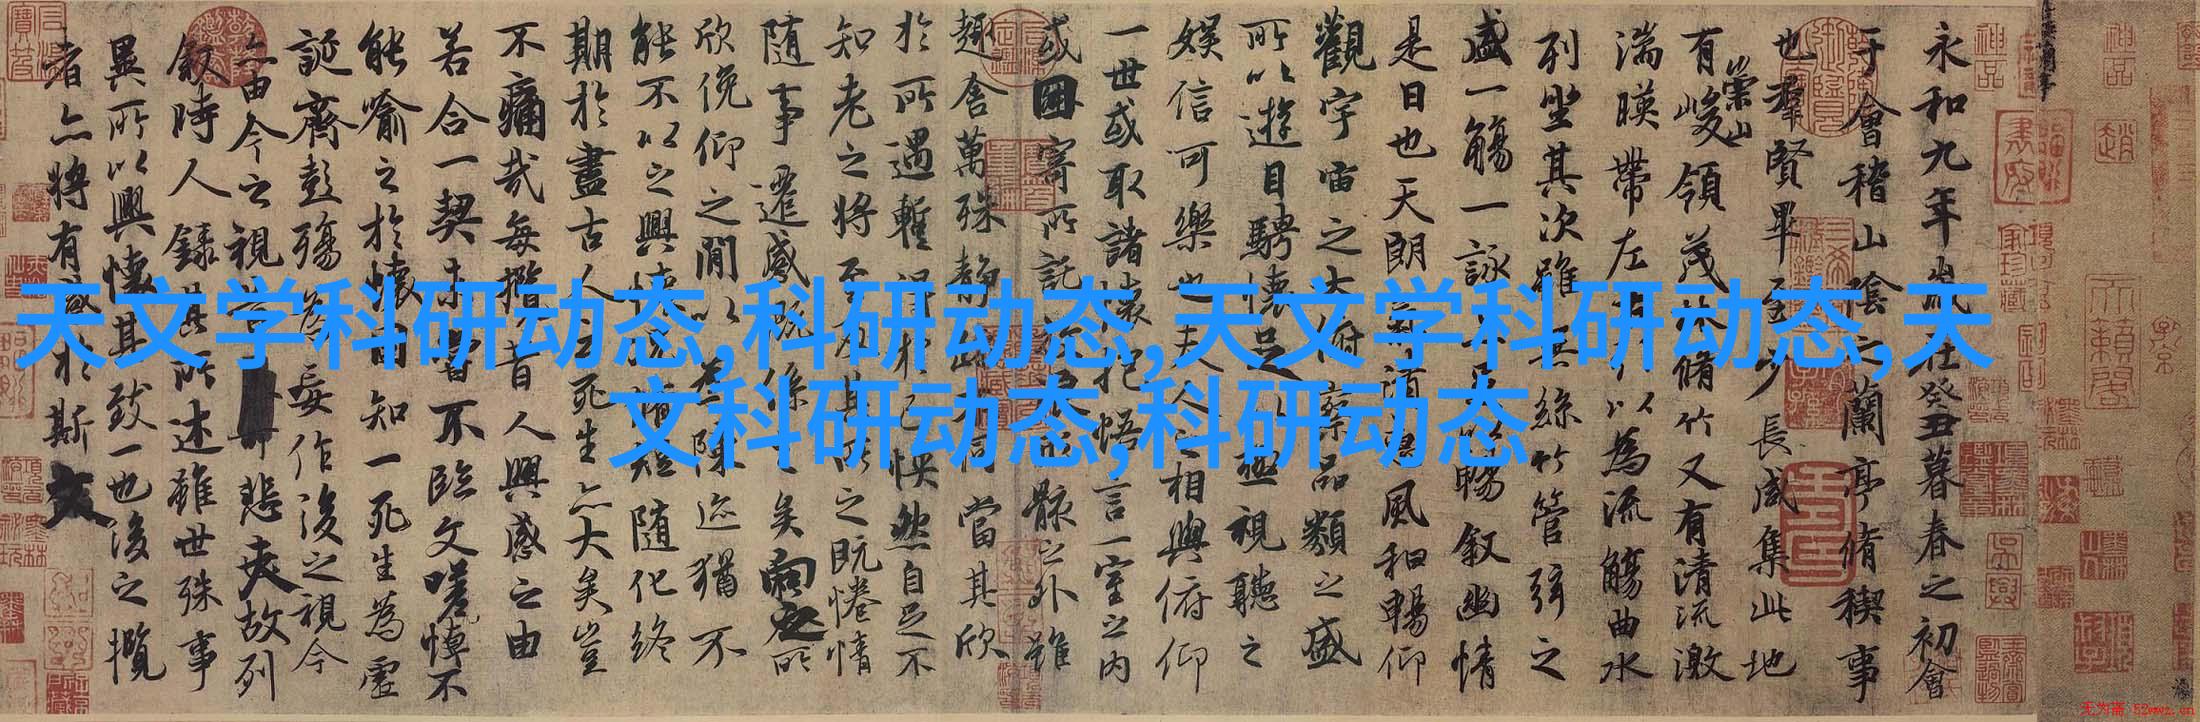 天文学科研动态,科研动态,天文学科研动态,天
文科研动态,科研动态
永和九年歲在癸丑暮春之初會
于會稽山陰之蘭亭脩稧事
也群賢畢至少長咸集此地
有崇山峻領茂林脩竹又有清流激
湍暎帶左右以為流觴曲水
列坐其次雖無絲竹管弦之
盛一觴一詠暢叙幽情
是日也天朗惠風和暢仰
觀宇宙之大俯察品類之盛
所以遊目騁懷足以極視聽之
娛信可樂也夫人之相與俯仰
一世或取諸懷抱悟言一室之內
或因寄所託形骸之外雖
趣舍萬殊靜躁不同當其欣
於所遇蹔得於己怏然自足不
知老之將至及其所之既惓情
隨事遷感慨係之矣向之所
欣俛仰之閒以為陳迹猶不
能不以之興懷況脩短隨化終
期於盡古人云死生亦大矣豈
不痛哉每攬昔人興感之由
若合一契未嘗不臨文嗟悼不
能喻之於懷固知一死生為虛
誕齊彭殤為妄作後之視今
亦由今之視昔悲夫故列
叙時人錄其所述雖世殊事
異所以興懷其致一也後之攬
者亦將有感於斯文
神品
无为斋 52wwz.cn